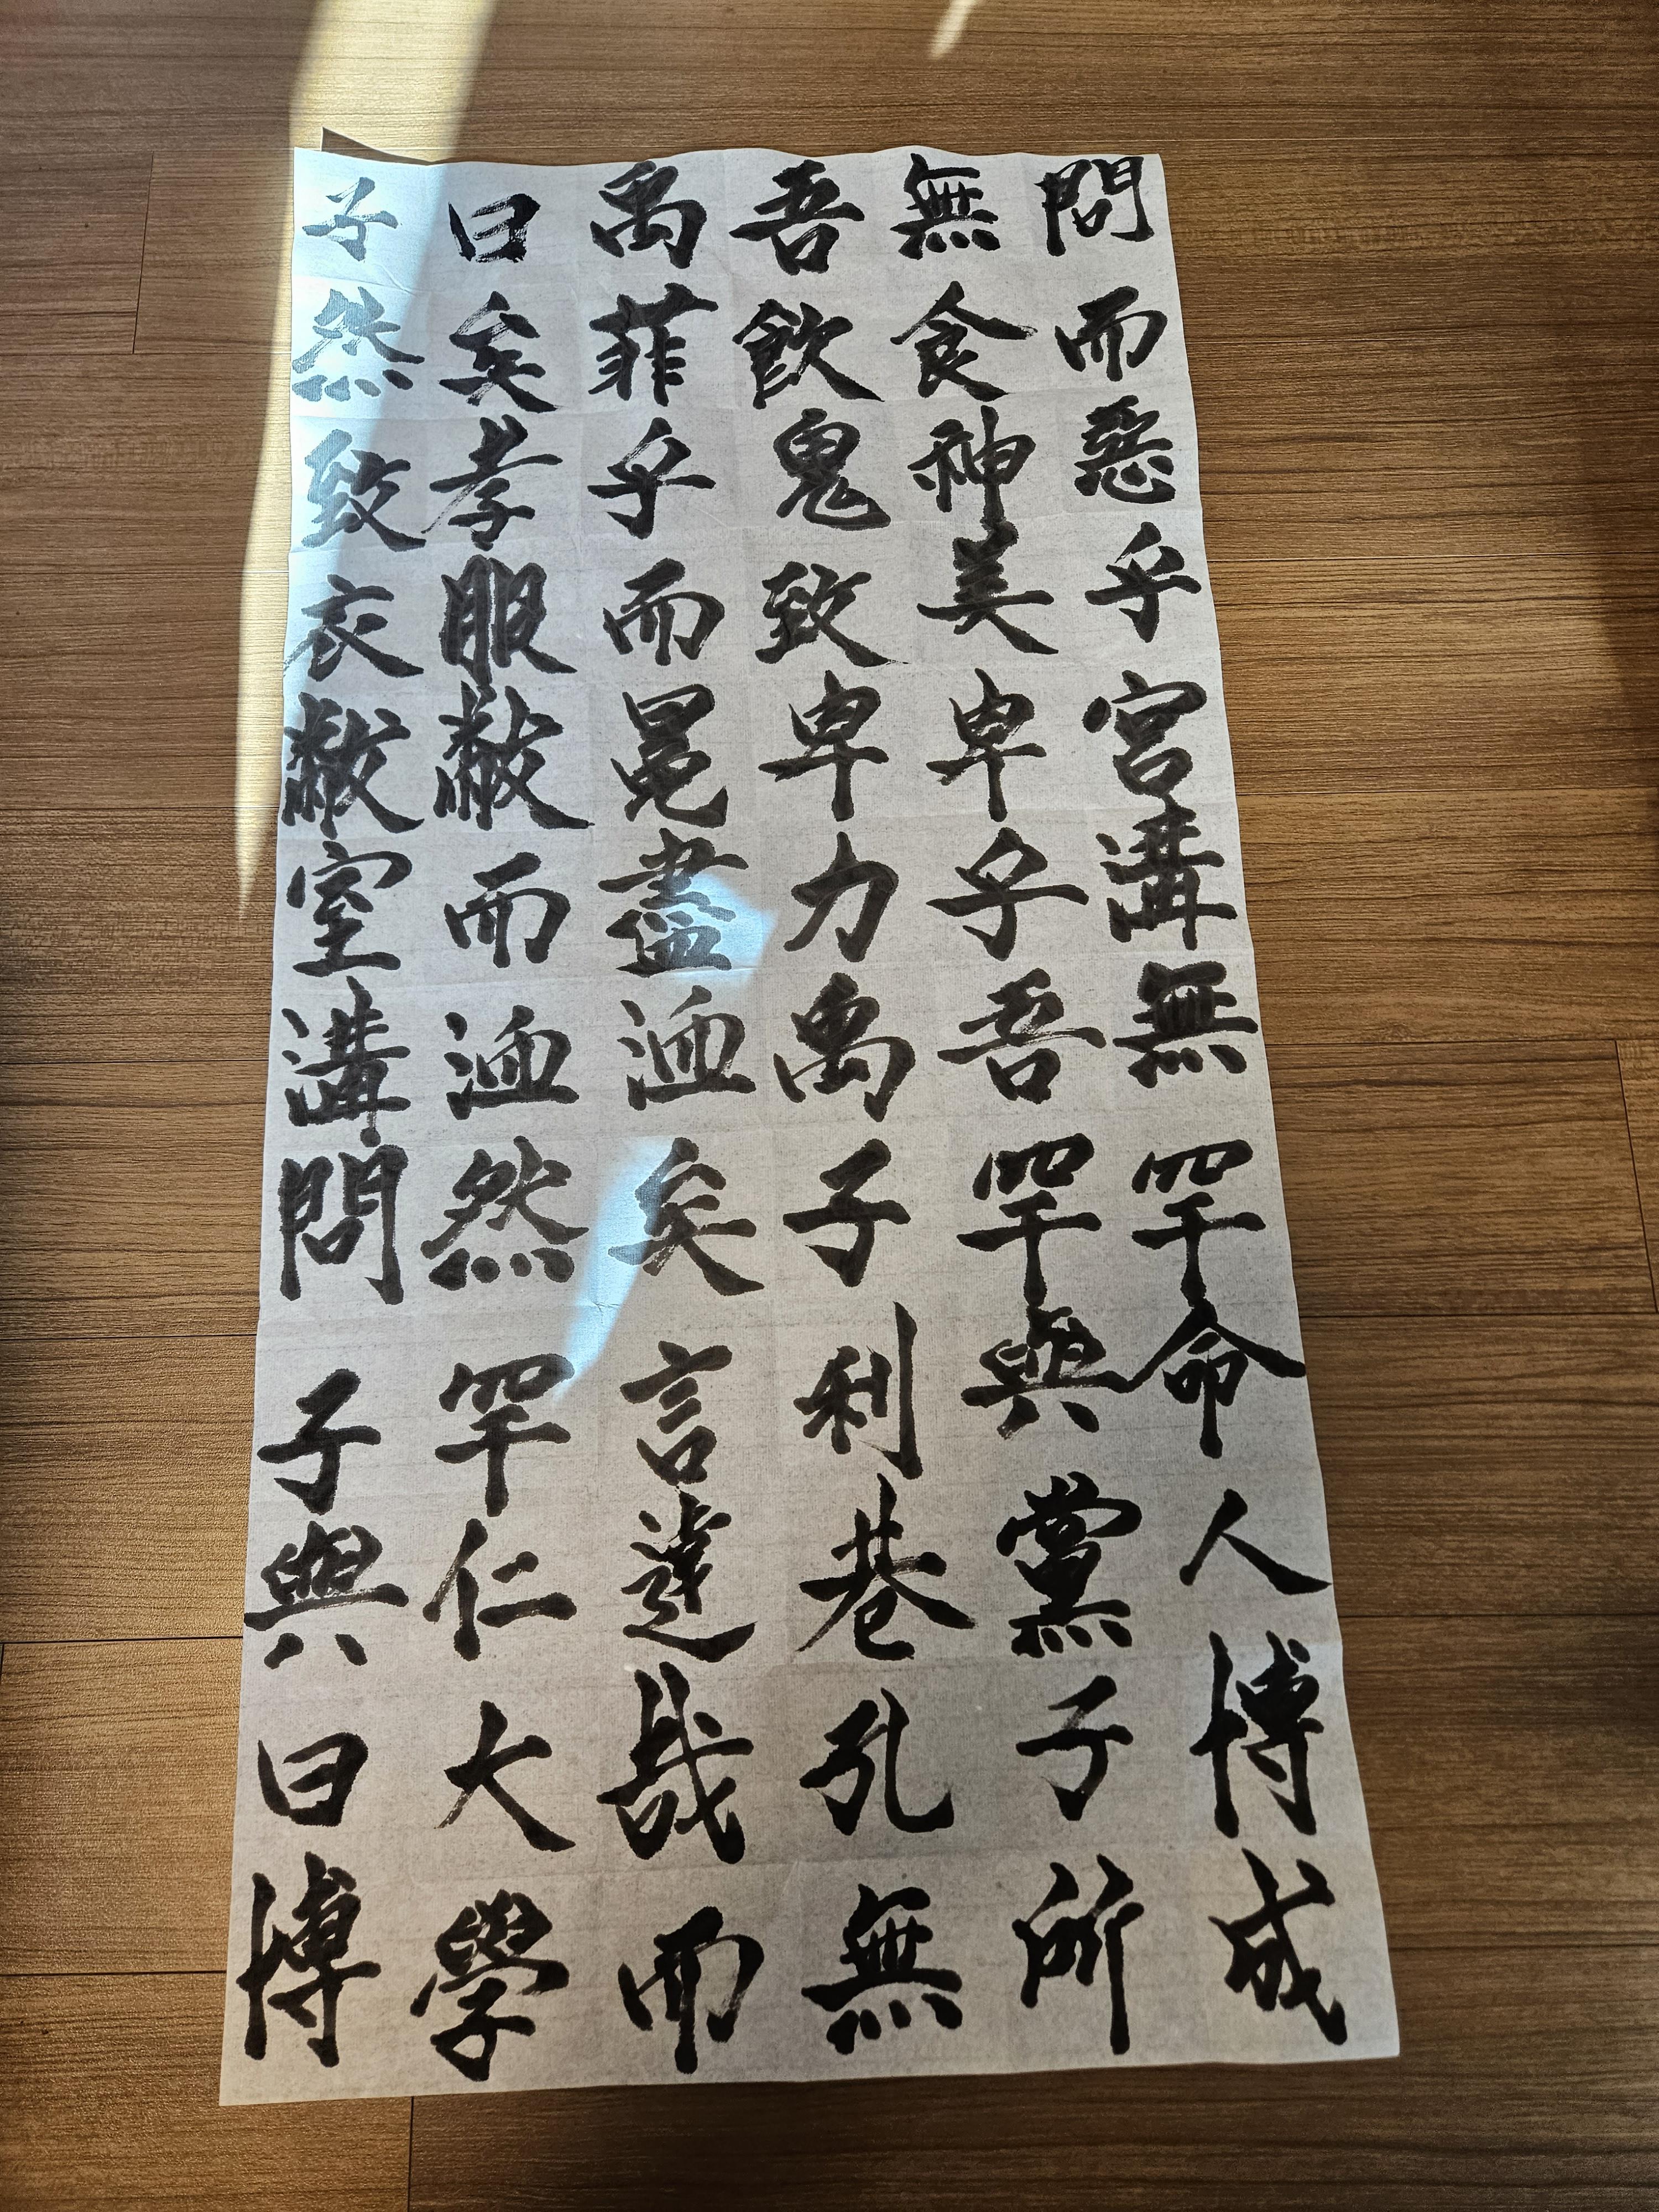 子曰禹吾無問
然矣菲飲食而
致孝乎鬼神惡
衣服而致美乎
黻黻冕卑卑宮
室而盡力乎溝
溝洫洫禹吾無
問然矣子罕罕
子罕言利與命
與仁達巷黨人
曰大哉孔子博
博學而無所成